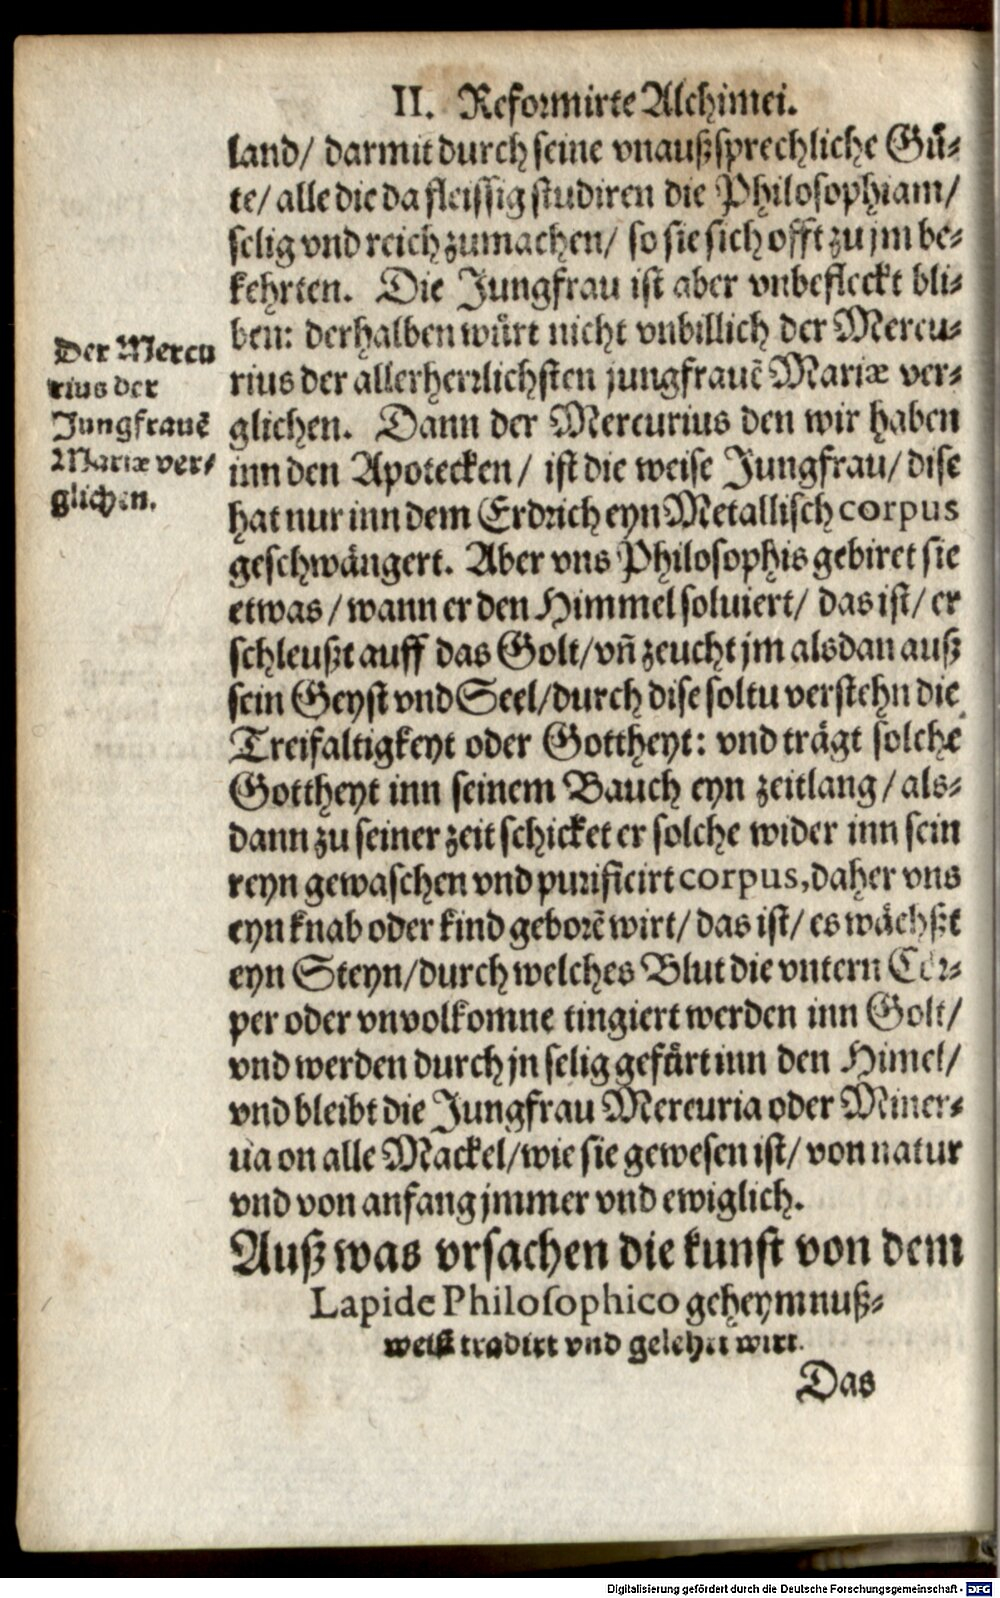 II. Reformirte Alchimei.
land/ darmit durch seine vnaußsprechliche Gü-
te/ alle die da fleissig studiren die Philosophiam/
selig vnd reich zumachen/ so sie sich offt zu jm be-
kehrten. Die Jungfrau ist aber vnbefleckt bli-
ben: derhalben würt nicht vnbillich der Mercu-
rius der allerherrlichsten jungfrauẽ Mariæ ver-
glichen. Dann der Mercurius den wir haben
inn den Apotecken/ ist die weise Jungfrau/ dise
hat nur inn dem Erdrich eyn Metallisch corpus
geschwängert. Aber vns Philosophis gebiret sie
etwas/ wann er den Himmel soluiert/ das ist/ er
schleußt auff das Golt/ vñ zeucht jm alsdan auß
sein Geyst vnd Seel/ durch dise soltu verstehn die
Treifaltigkeyt oder Gottheyt: vnd trägt solche
Gottheyt inn seinem Bauch eyn zeitlang/ als-
dann zu seiner zeit schicket er solche wider inn sein
reyn gewaschen vnd purificirt corpus, daher vns
eyn knab oder kind geborẽ wirt/ das ist/ es wächßt
eyn Steyn/ durch welches Blut die vntern Cör-
per oder vnvolkomne tingiert werden inn Golt/
vnd werden durch jn selig gefürt inn den Himel/
vnd bleibt die Jungfrau Mercuria oder Miner-
ua on alle Mackel/ wie sie gewesen ist/ von natur
vnd von anfang jmmer vnd ewiglich.
Der Mercu
rius der
Jungfrauẽ
Mariæ ver-
glichen.
Auß was vrsachen die kunst von dem
Lapide Philosophico geheymnuß-
weiß tradirt vnd gelehrt wirt.
Das
Digitalisierung gefördert durch die Deutsche Forschungsgemeinschaft - DFG